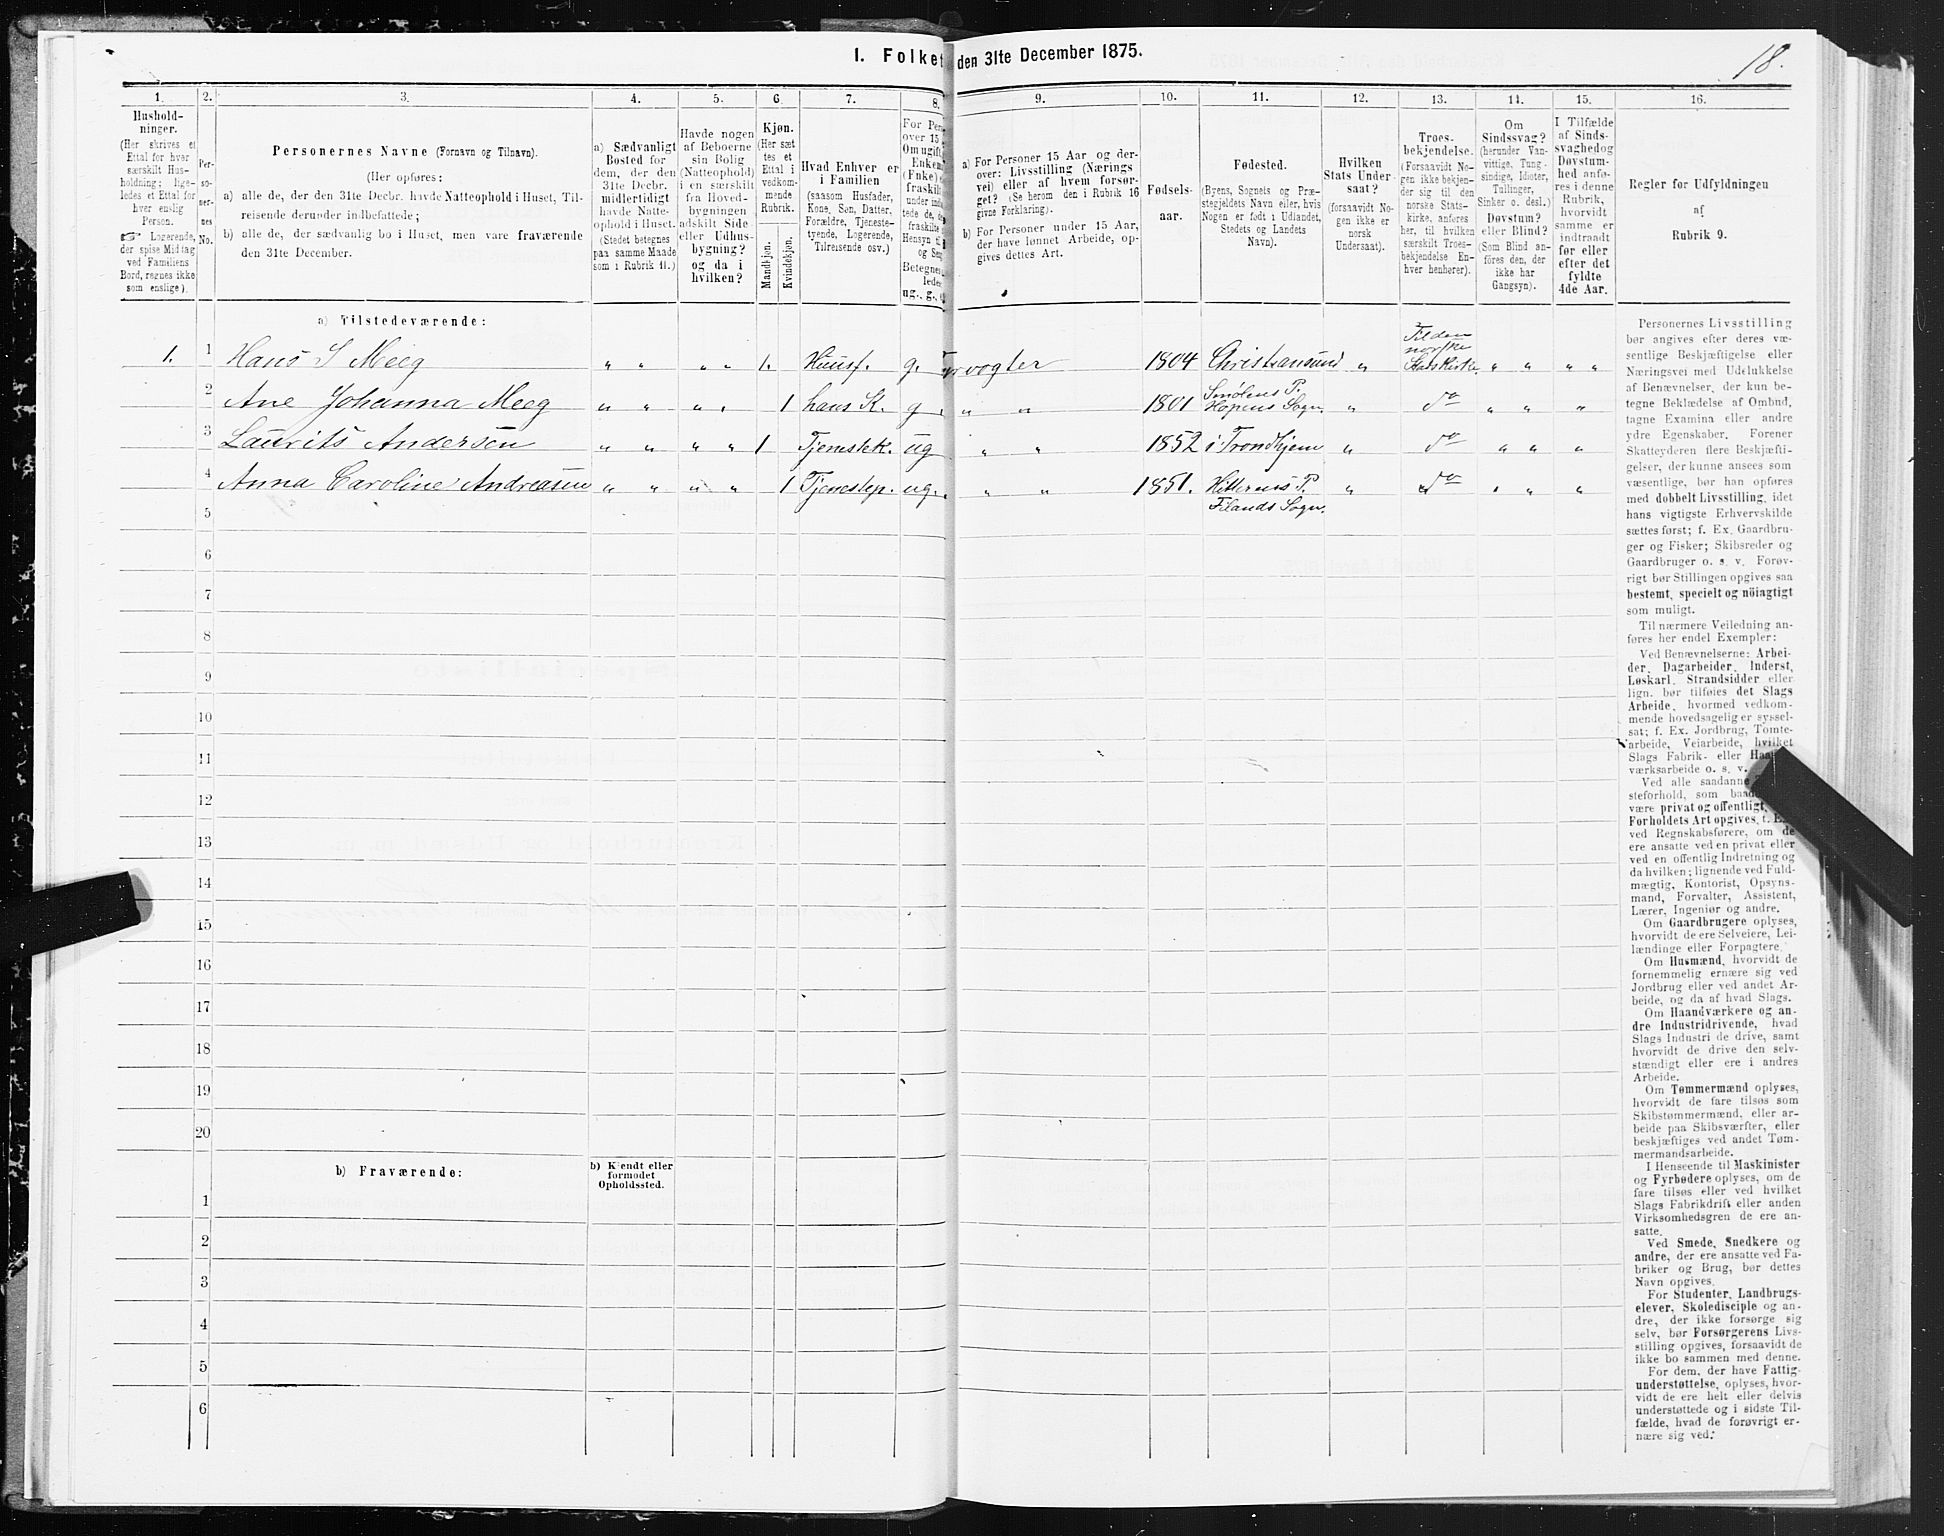 I. Folket den 31te December 1875.
18.
1. 2. 3. 4. 5. 6. 7. 8. 9. 10. 11. 12. 13. 14. 15. 16.
Hushold-
ninger.
(Her skrives et
Ettal for hver
særskilt Hus-
holdning; lige-
ledes et Ettal for
hver enslig
Person.
☞ Logerende,
der spise Middag
ved Familiens
Bord, regnes ikke
som enslige).
Per-
so-
ner-
nes
No.
Personernes Navne (Fornavn og Tilnavn).
(Her opføres:
a) alle de, der den 31te Decbr. havde Natteophold i Huset, Til-
reisende derunder indbefattede;
b) alle de, der sædvanlig bo i Huset, men vare fraværende
den 31te December.
a) Sædvanligt
Bosted for
dem, der den
31te Decbr.
midlertidigt
havde Natte-
ophold i Huset.
(Stedet betegnes
paa samme Maade
som i Rubrik 11.)
Havde nogen
af Beboerne
sin Bolig
(Natteophold)
i en særskilt
fra Hoved-
bygningen
adskilt Side-
eller Udhus-
bygning?
og da i
hvilken?
Kjøn.
(Her sæt-
tes et
Ettal i
vedkom-
mende
Rubrik.
Mandkjøn.
Kvindekjøn.
Hvad Enhver er
i Familien
(saasom Husfader,
Kone, Søn, Datter,
Forældre, Tjeneste-
tyende, Logerende,
Tilreisende osv.)
For Per
over 15
Om ugift,
Enkem
(Enke)
fraskilt
a) For Personer 15 Aar og der-
over: Livsstilling (Nærings
vei) eller af hvem forsør-
get? (Se herom den i Rubrik 16
givne Forklaring).
b) For Personer under 15 Aar,
der have lønnet Arbeide, op-
gives dettes Art.
Fødsels-
aar.
Fødested.
(Byens, Sognets og Præ-
stegjeldets Navn eller, hvis
Nogen er født i Udlandet,
Stedets og Landets
Navn).
Hvilken
Stats Under-
saat?
(forsaavidt No-
gen ikke er
norsk
Undersaat).
Troes-
bekjendelse.
(Forsaavidt No-
gen ikke bekjen-
der sig til den
norske Stats-
kirke, anføres
her, til hvilken
særskilt Troes-
bekjendelse En-
hver henhører).
Om
Sindssvag?
(herunder Van-
vittige, Tung-
sindige, Idioter,
Tullinger,
Sinker o. desl.)
Døvstum?
eller Blind?
(Som Blind an-
føres den, der
ikke har
Gangsyn).
I Tilfælde
af Sinds-
svaghed og
Døvstum-
hed anfø-
res i denne
Rubrik,
hvorvidt
samme er
indtraadt
før eller
efter det
fyldte
4de Aar.
Regler for Udfyldningen
af
Rubrik 9.
a) Tilstedeværende:
1. 1 Hans S Meeg " " " " 1. Huusf. g. 1804 Christiansund " Til den norske Statskirke. " " " "
2 Ane Johanna Meeg " " " " 1 hans K. g. " " 1801 Smølens P. Hopens Sogn. " do " " "
3 Laurits Andersen " " " " 1 Tjenestek. ug " " 1852 i Trondhjem " do " " "
4 Anna Caroline Andreasen " " " " 1 Tjenestep. ug. " " 1851. Hitterens P. Filands Sogn. " do " " "
5
6
7
8
9
10
11
12
13
14
15
16
17
18
19
20
b) Fraværende:
b) Kjendt eller
formodet
Opholdssted.
1
2
3
4
5
6
Personernes Livsstilling
bør angives efter deres væ-
sentlige Beskjæftigelse eller
Næringsvei med Udelukkelse
af Benævnelser, der kun be-
tegne Beklædelse af Ombud,
tagne Examina eller andre
ydre Egenskaber. Forener
Skatteyderen flere Beskjæfti-
gelser, der kunne ansees som
væsentlige, bør han opføres
med dobbelt Livsstilling, idet
hans vigtigste Erhvervskilde
sættes først; f. Ex. Gaardbru-
ger og Fisker; Skibsreder og
Gaardbruger o. s. v. Forøv-
rigt bør Stillingen opgives saa
bestemt, specielt og nöiagtigt
som muligt.
Til nærmere Veiledning an-
føres her endel Exempler:
Ved Benævnelserne: Arbei-
der, Dagarbeider, Inderst,
Løskarl, Strandsidder eller
lign. bør tilføies det Slags
Arbeide, hvormed vedkom-
mende hovedsagelig er syssel-
sat; f. Ex. Jordbrug, Tomte-
arbeide, Veiarbeide, hvilket
Slags Fabrik- eller Haand-
værksarbeide o. s. v.
Ved alle saadanne
steforhold, som baade
være privat og offentligt,
Forholdets Art opgives, t. Ex.
ved Regnskabsførere, om de
ere ansatte ved en privat eller
ved en offentlig Indretning og
da hvilken; lignende ved Fuld-
mægtig, Kontorist, Opsyns-
mand, Forvalter, Assistent,
Lærer, Ingeniør og andre.
Om Gaardbrugere oplyses,
hvorvidt de ere Selveiere, Lei-
lændinge eller Forpagtere.
Om Husmænd, hvorvidt de
fornemmelig ernære sig ved
Jordbrug eller ved andet Ar-
beide, og da af hvad Slags.
Om Haandværkere og an-
dre Industridrivende, hvad
Slags Industri de drive, samt
hvorvidt de drive den selv-
stændigt eller ere i andres
Arbeide.
Om Tømmermænd oplyses,
hvorvidt de fare tilsøs som
Skibstømmermænd, eller ar-
beide paa Skibsværfter, eller
beskjæftiges ved andet Tøm-
mermandsarbeide.
I Henseende til Maskinister
og Fyrbødere oplyses, om de
fare tilsøs eller ved hvilket
Slags Fabrikdrift eller anden
Virksomhedsgren de ere an-
satte.
Ved Smede, Snedkere og
andre, der ere ansatte ved Fa-
briker og Brug, bør dettes
Navn opgives.
For Studenter, Landbrugs-
elever, Skoledisciple og an-
dre, der ikke forsørge sig
selv, bør Forsørgerens Livs-
stilling opgives, forsaavidt de
ikke bo sammen med denne.
For dem, der have Fattig-
understøttelse, oplyses, hvor-
vidt de ere helt eller delvis
understøttede og i sidste Til-
fælde, hvad de forøvrigt er-
nære sig ved.